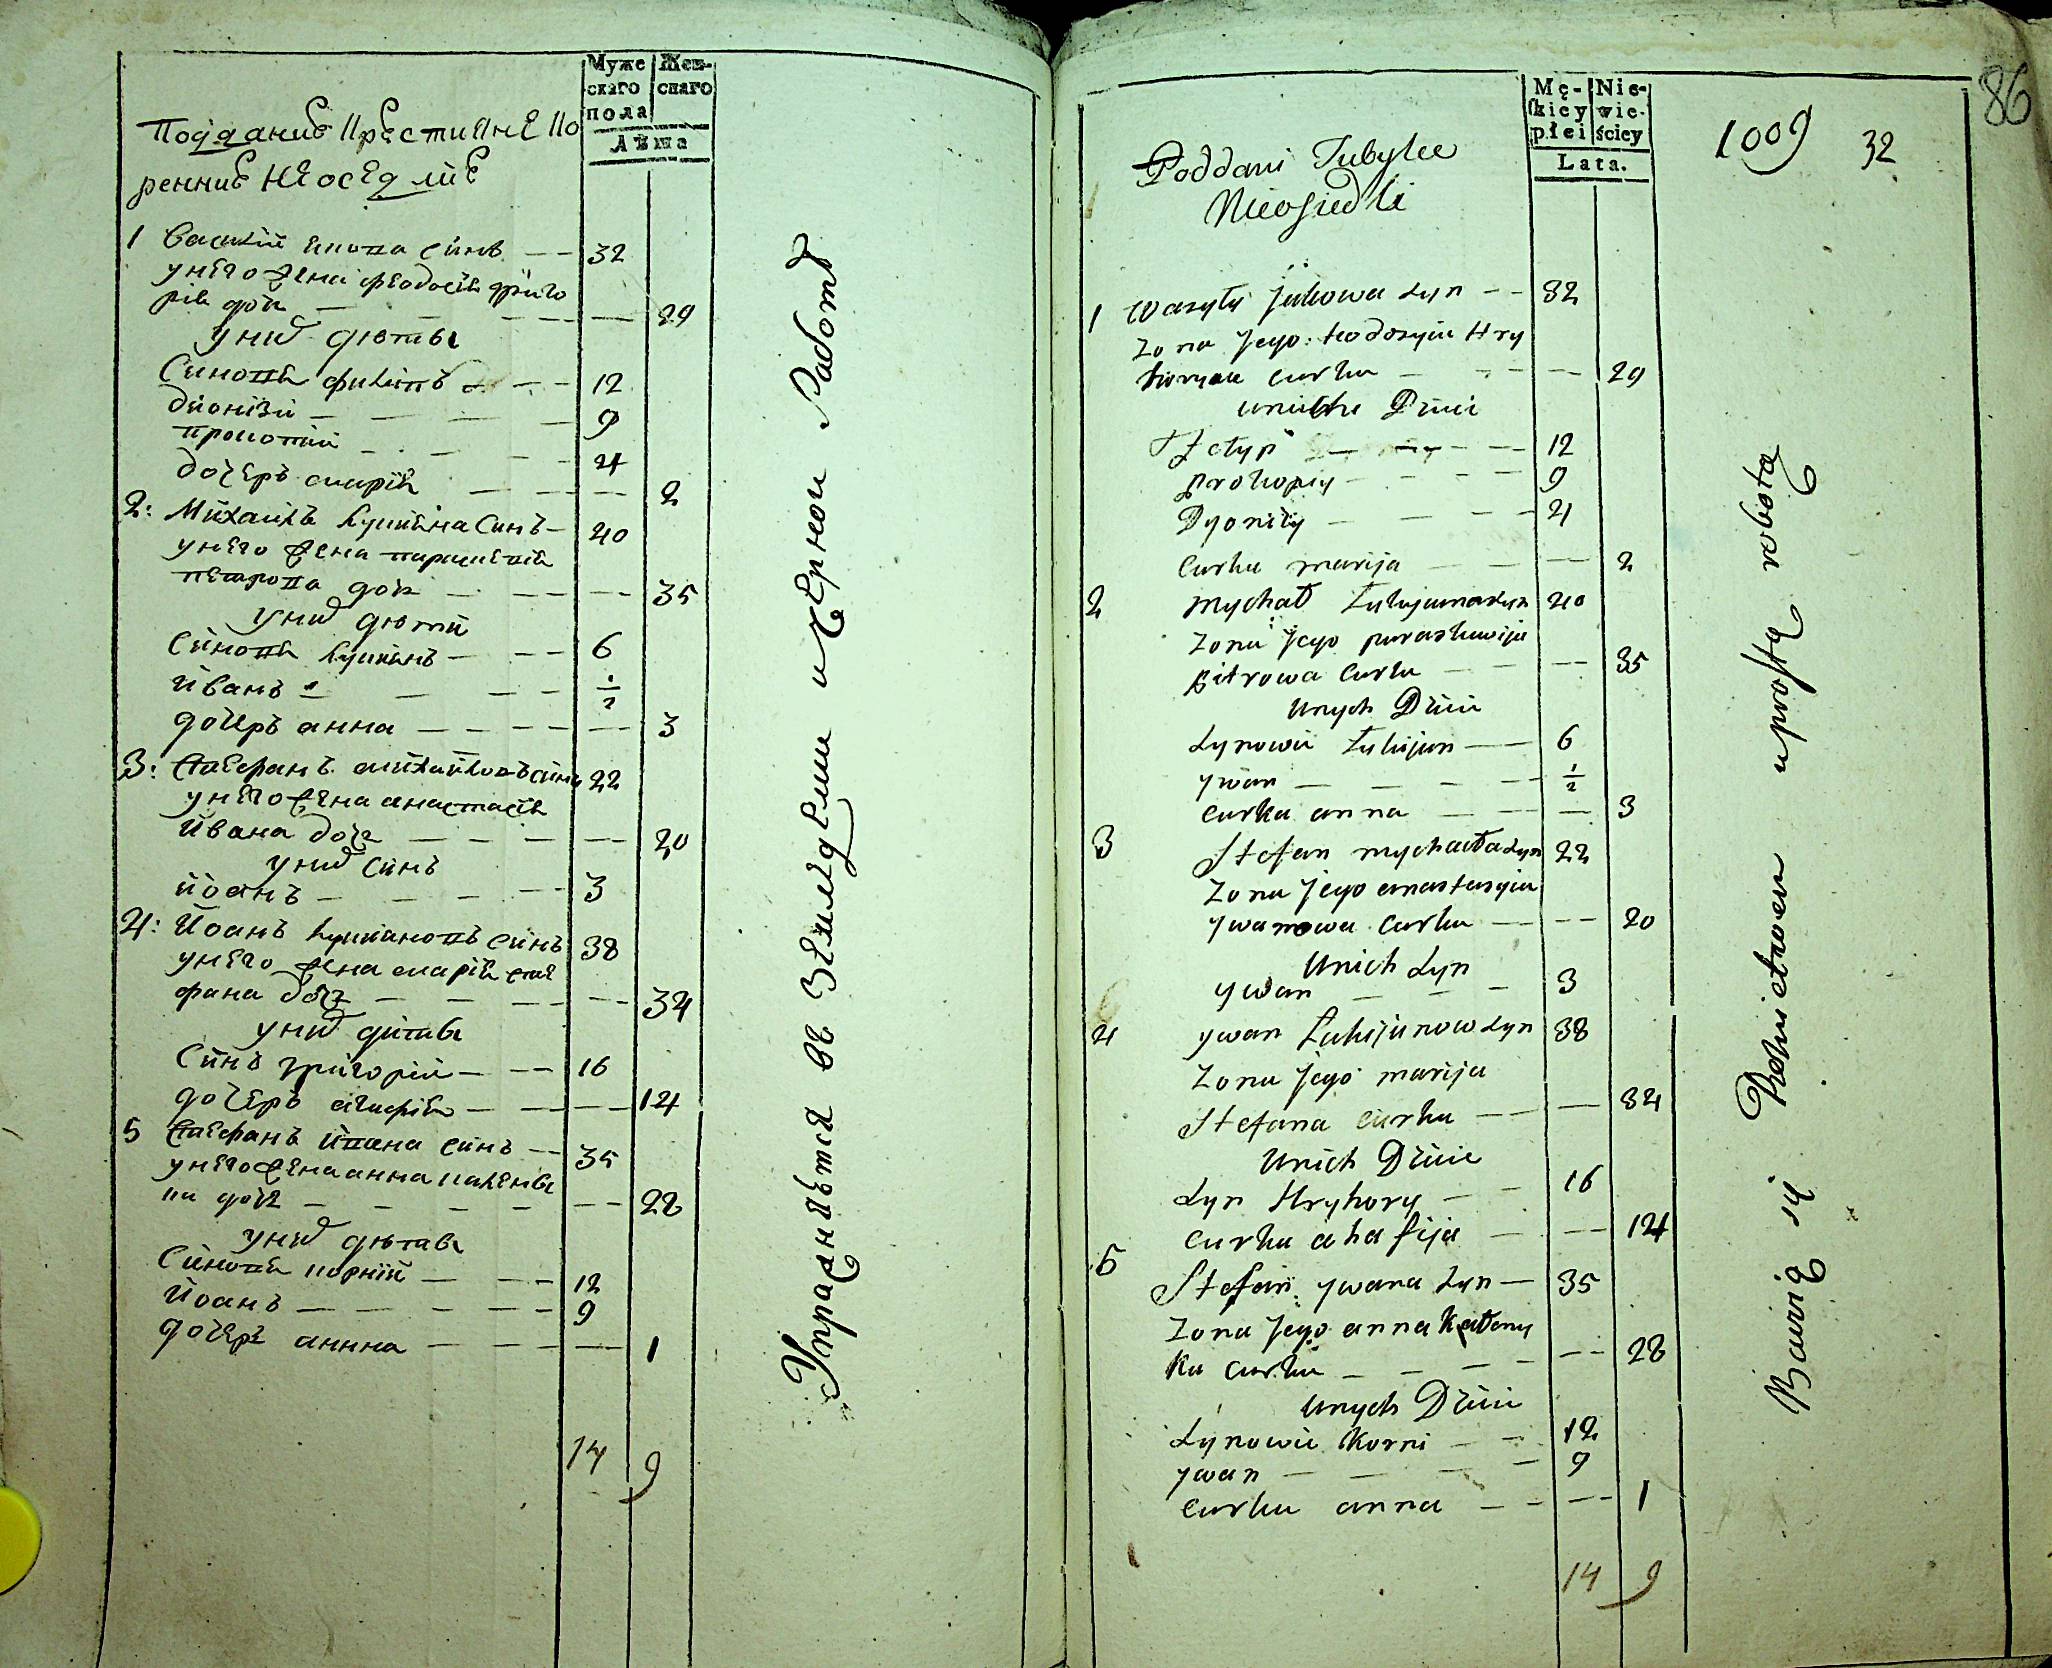 Муже
скаго
пола
Жен-
скаго
Лѣта
Подданиѣ Крестиянѣ Ко
реннiѣ Неоседлиѣ
1 Василiй Якова синъ — — 32
у него жена феодосiя григо
рiя дочь — — — — 29
у них дѣти
Синовя филипъ — — 12
Дионiзiй — — — 9
Прокопiй — — — 4
дочеръ марiя — — — 2
2: Михаилъ Лукияна Синъ — 40
у него жена параскевiя
петрова дочь — — — 35
у них дѣти
Синовя Лукиянъ — — — 6
Иванъ — — — — 1/2
дочеръ анна — — — — 3
3: Стефанъ михайловъ синъ 22
у него жена анастасiя
Ивана дочь — — — — 20
у них синъ
Иоанъ — — — — 3
4: Иоанъ Лукияновъ синъ 38
у него жена марiя сте
фана дочь — — — — 34
у них дѣти
Синъ григорiй — — — 16
дочеръ агафiя — — — 14
5 Стефанъ Ивана синъ — — 35
у него жена анна
дочь — — — — 28
у них дѣти
Синовя корнiй — — — 12
Иоанъ — — — — — 9
дочеръ аннна — — — — 1
14 9
Упражняѣтся въ Земледелии и Черной Работѣ
86
Mę-
skiey
płci
Nie-
wie-
ściey
Lata.
1009 32
Poddani Tubylce
Nieosiedli
1 Wasyly Jakowa syn — — 32
Zona Jego: teodozyia Hry
horyia curka — — — 29
unich Dzici
Filyp — — — 12
Prokopiy — — — 9
Dyonizy — — — 4
Curka marija — — — 2
2 Mychał Łukijana syn 40
Zona Jego paraskiewija
Pitrowa Curka — — — 35
Unych Dzici
Synowie Łukijan — — 6
ywan — — — — 1/2
Curka anna — — — 3
3 Stefan mychaiła syn 22
Zona Jego anastasyia
ywanowa Curka — — — 20
Unich Syn
ywan — — — 3
4 ywan Łukijanow Syn 38
Zona Jego marija
Stefana curka — — — 34
Unich Dzici
Syn Hryhory — — 16
Curka ahafija — — — 14
5 Stefan ywana Syn — 35
Zona Jego anna Kałeny
ka curka — — — — 28
Unych Dzici
Synowie Korni — — 12
ywan — — — — 9
Curka anna — — — 1
14 9
Bawią się Rolnictwem y prostą robotą